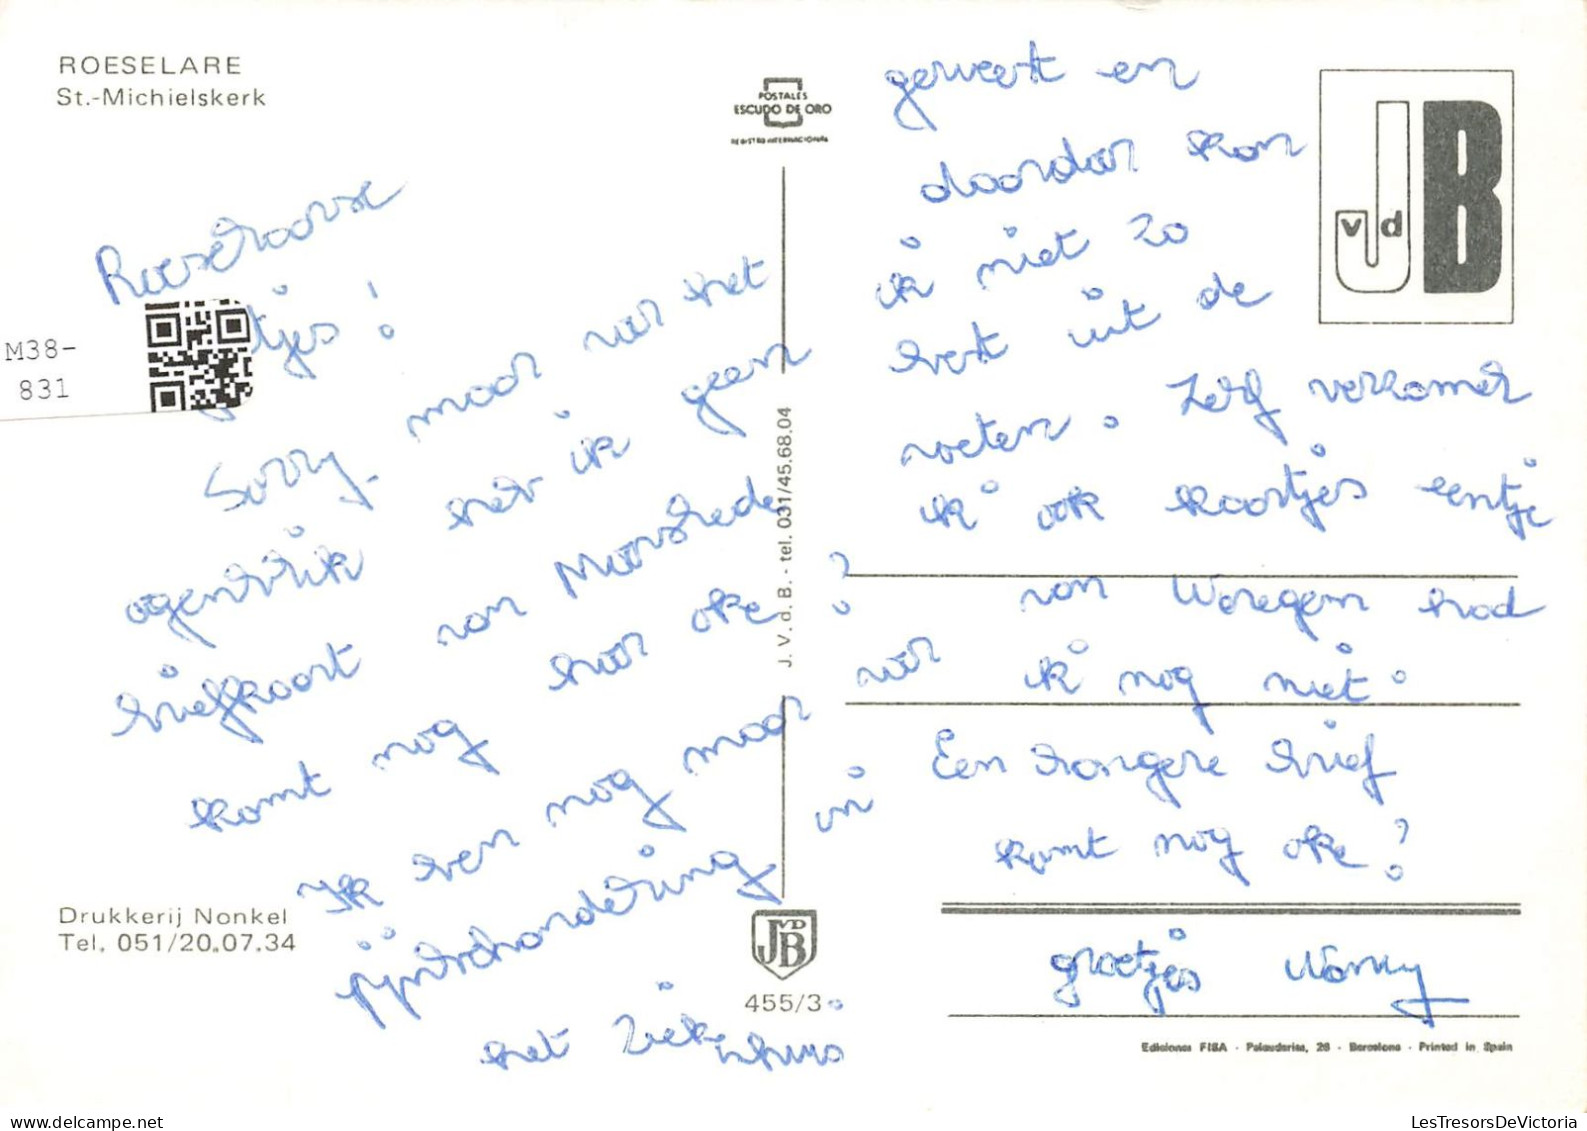 ROESELARE
St.-Michielskerk
POSTALES
ESCUDO DE ORO
REGISTRO INTERNACIONAL
M38-
831
tjes!
Sorry maar voor het
ogenblik heb ik geen
briefkaart van Moorslede
komt nog hoor oke?
Ik ben nog maar voor
pijnbehandeling in
het ziekenhuis
geweest en
daardoor kon
ik niet zo
best uit de
voeten. Zelf verzamel
ik ook kaartjes eentje
van Waregem had
ik nog niet.
Een langere brief
komt nog oke?
groetjes Nancy
J.V.d.B. - tel. 031/45.68.04
Drukkerij Nonkel
Tel. 051/20.07.34
JVDB
455/3
J vd B
Ediciones FISA - Palaudarias, 26 - Barcelona - Printed in Spain
LesTresorsDeVictoria